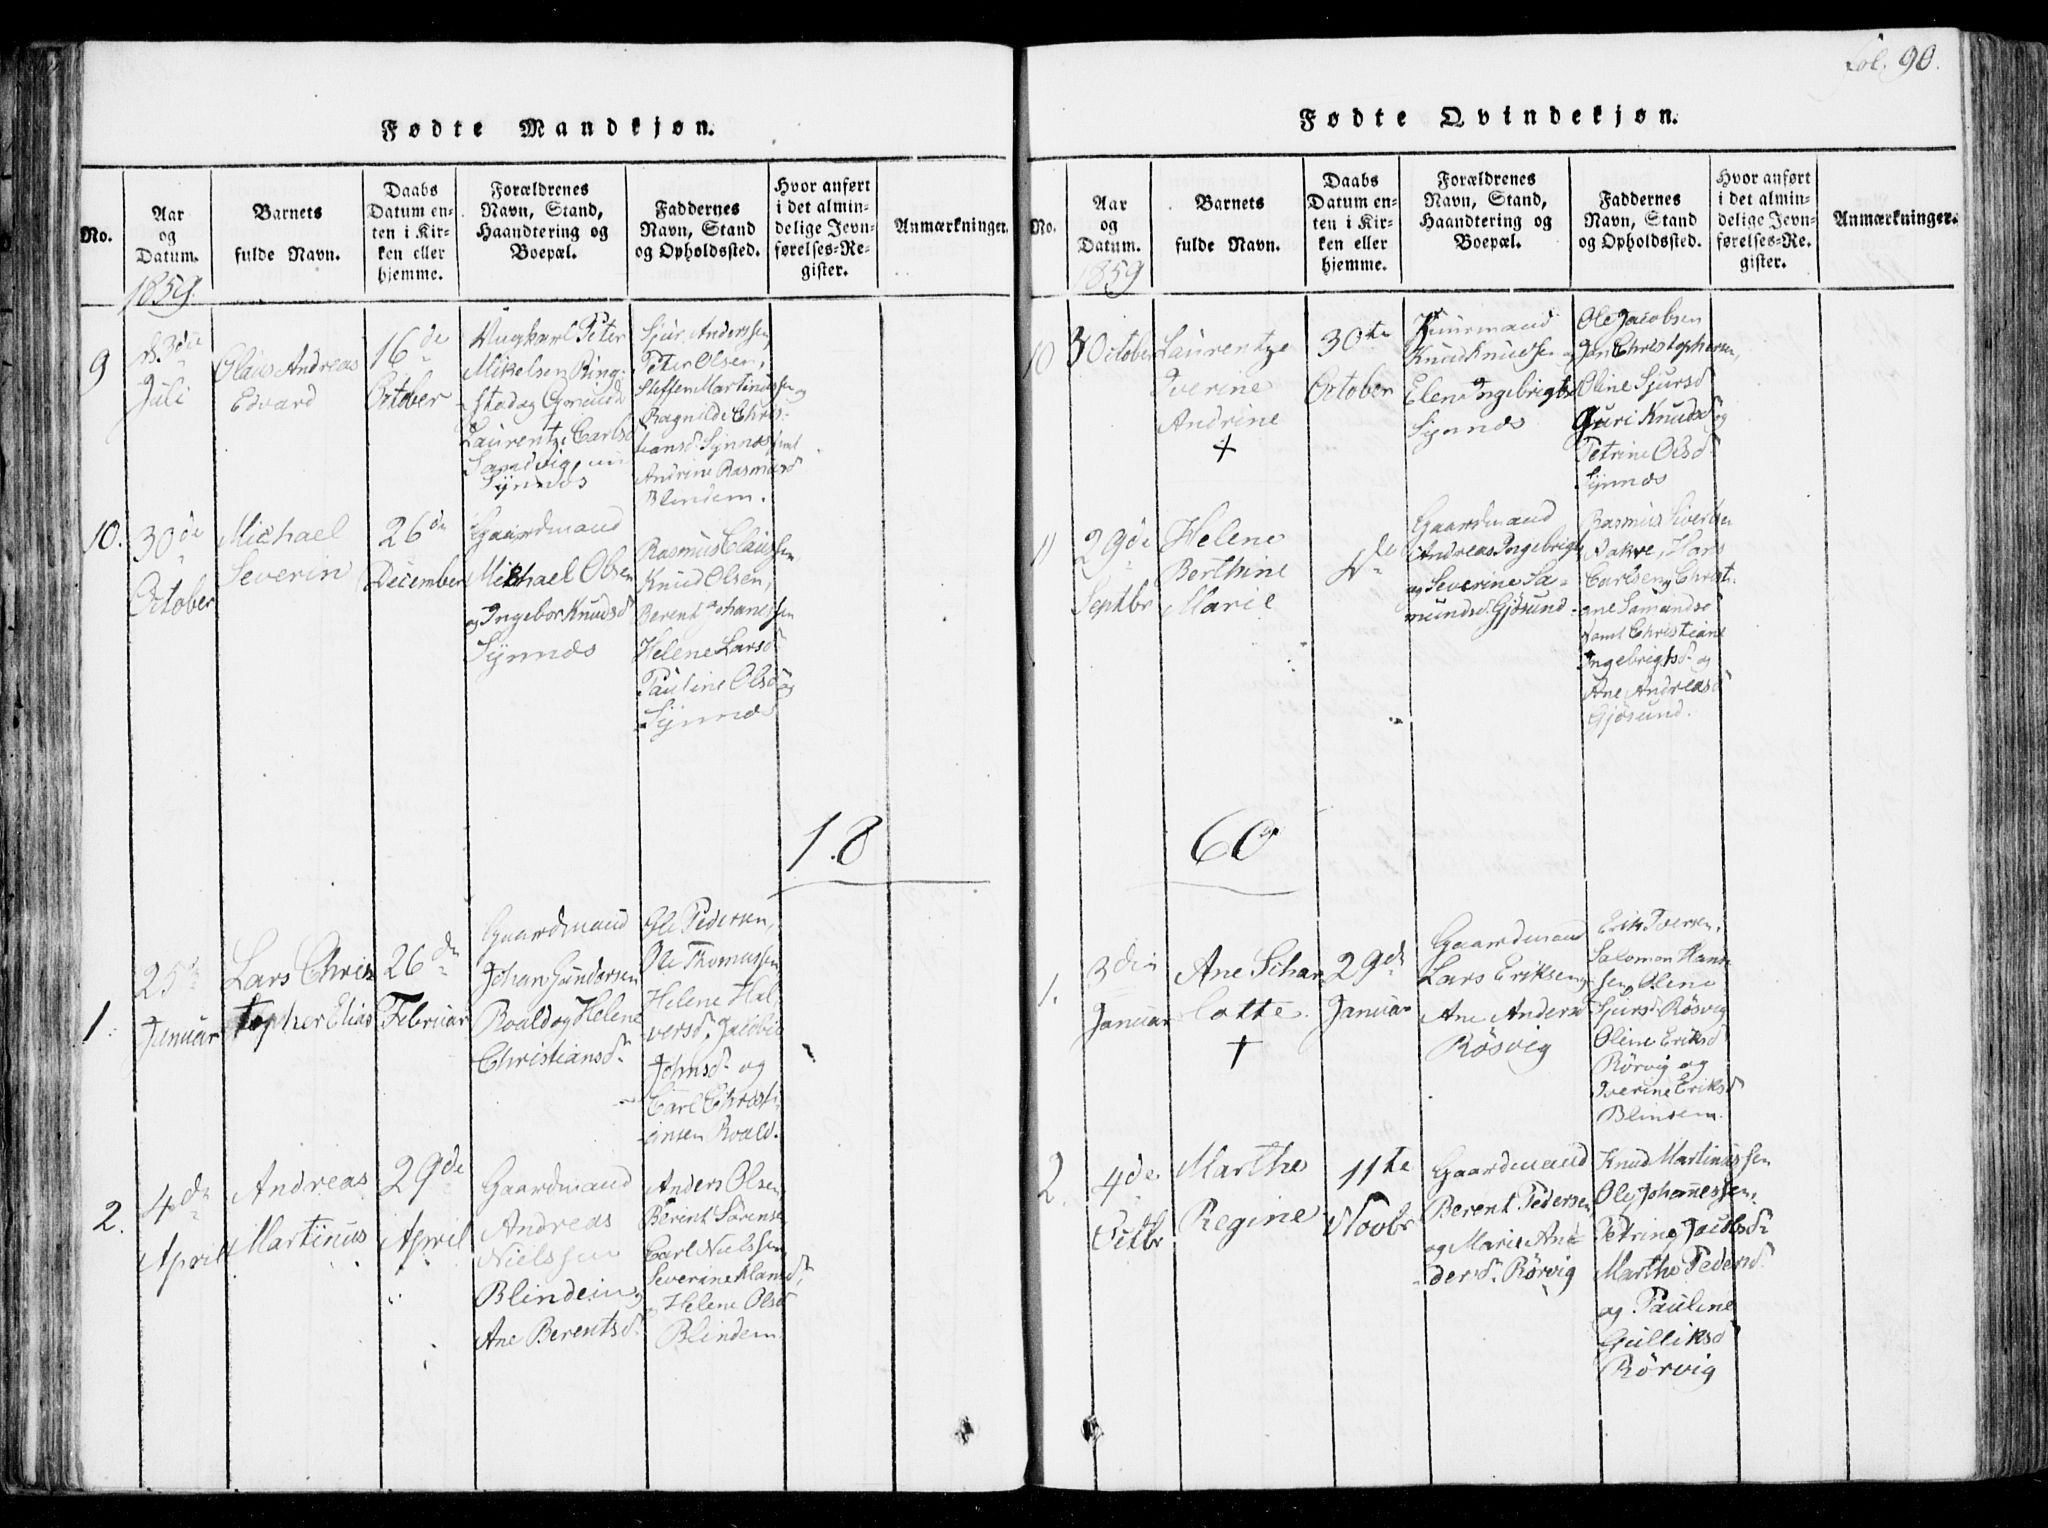 Fødte Mandkjøn.
No.
Aar
og
Datum.
Barnets
fulde Navn.
Daabs
Datum en-
ten i Kir-
ken eller
hjemme.
Forældrenes
Navn, Stand,
Haandtering og
Boepæl.
Faddernes
Navn, Stand
og Opholdssted.
Hvor anført
i det almin-
delige Jevn-
førelses-Re-
gister.
Anmærkninger.
1859.
9
Juli
Olaus Andreas
Edvard
16de
October
Peter
Mikelsen Ring-
stad og
Laurentze Carlsd
Synnæs
Sjur Anderssen
Peter Olsen,
Steffen Martinussen og
Ragnilde Chris-
tiansd. Synnæs samt
Andrine Rasmusd
Blindem.
10.
30de
October
Michael
Severin
26de
December
Gaardmand
Michael Olsen
og Ingebor Knudsd
Synnæs
Rasmus Claussen
Knud Olsen,
Berent Johanessen
Helene Larsd
Pauline Olsd og
Synnæs
18
1.
25de
Januar
Lars Chris
topher Elias
26de
Februar
Gaardmand
Johan Gundersen
Roald og Helene
Christiansd.
Ole Pedersen,
Ole Thomassen
Helene Hal
versd. Jacobia
Johnsd og
Carl Christi
ansen Roald.
2.
4de
April
Andreas
Martinus
29de
April
Gaardmand
Andreas
Nielssen
Blindem og
Ane Berentsd.
Anders Olsen
Berent Sørensen
Carl Nielssen
Severine Hansd,
og Helene Olsd
Blindem
Fol. 90.
Fødte Qvindekjøn.
No.
Aar
og
Datum.
Barnets
fulde Navn.
Daabs
Datum en-
ten i Kir-
ken eller
hjemme.
Forældrenes
Navn, Stand,
Haandtering og
Boepæl.
Faddernes
Navn, Stand
og Opholdssted.
Hvor anført
i det almin-
delige Jevn-
førelses-Re-
gister.
Anmærkninger.
1859
10
3 October
Laurentze
Iverine
Andrine
+
30te
October
Knud Knudsen og
Elen Ingebrigtsd
Synnæs
Ole Jacobsen
Jon Christophersen,
Oline Sjursd
Guri Knudsd og
Petrine Olsd
Synnæs
11
29de
Septbr
Helene
Berthine
Marie
4de
Gaardmand
Andreas Ingebrigts
og Severine Sa-
mundsd. Gjøsund.
Rasmus Sivertsen
Nakve, Hans
Carlsen og Christi-
ane Samundsd
samt Christiane
Ingebrigtsd og
Ane Andreasd
Gjøsund.
60
1.
3die
Januar
Ane Schar
lotte.
+
29de
Januar
Gaardmand
Lars Eriksen og
Ane Andersd
Røsvig
Erik Iversen,
Salomon Hans
sen, Olene
Sjursd. Røsvig
Oline Eriksd
Rørvig og
Iverine Eriksd
Blindem.
2.
4de
Octbr
Marthe
Regine
11te
Novbr
Gaardmand
Berent Pedersen
og Marie An-
dersd. Rørvig
Knud Martinussen
Ole Johannessen,
Petrine Jacobsd
Marthe Pedersd.
og Pauline
Gulliksd
Rørvig